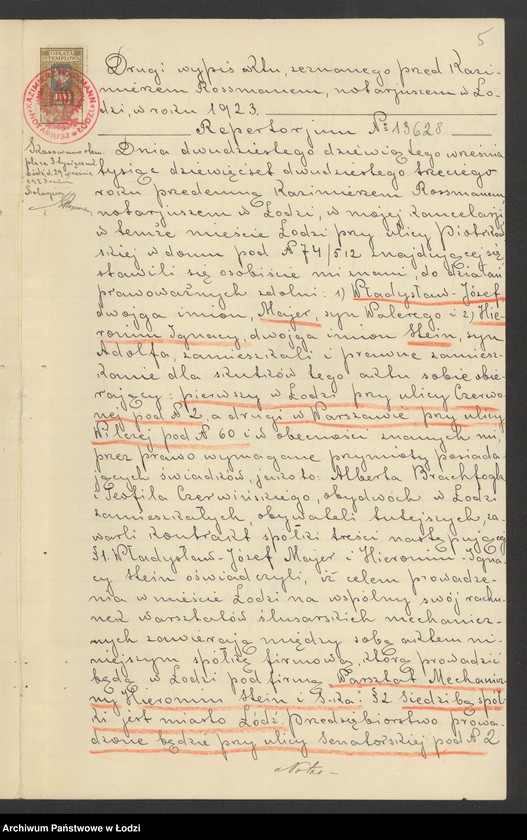 5
OPŁATA
STEMPLOWA
KAZIMIERZ ROSSMANN
NOTARIUSZ w ŁODZI
Drugi wypis aktu, zeznanego przed Kazi-
mierzem Rossmanem, notarjuszem w Ło-
dzi, w roku 1923.
Repertorjum № 13628
Skasowano stem-
Łódź d. 29 września
1923 roku
Dnia dwudziestego dziewiątego września
tysiąc dziewięćset dwudziestego trzeciego
roku przedemną Kazimierzem Rossmanem,
notarjuszem w Łodzi, w mojej kancelarji
w temże mieście Łodzi przy ulicy Piotrkow-
skiej w domu pod № 74/512 znajdującej się
stawili się osobiście mi znani, do działań
prawoważnych zdolni: 1) Władysław-Józef
dwojga imion, Majer, syn Walerego i 2) Hie-
ronim Ignacy, dwojga imion Stein, syn
Adolfa, zamieszkali i prawne zamiesz-
kanie dla skutków tego aktu sobie obie-
rający, pierwszy w Łodzi przy ulicy Czerwo-
nej pod № 2, a drugi w Warszawie przy ulicy
Wilczej pod № 60 i w obecności znanych mi,
przez prawo wymagane przymioty posiada-
jących świadków, jako to: Alberta Brachfogla
i Teofila Czerwińskiego, obydwóch w Łodzi
zamieszkałych, obywateli tutejszych, za-
warli kontrakt spółki treści następującej
§1. Władysław-Józef Majer i Hieronim-Igna-
cy Stein oświadczyli, iż celem prowadze-
nia w mieście Łodzi na wspólny swój rachu-
nek warsztatów ślusarskich mechanicz-
nych zawierają między sobą aktem ni-
niejszym spółkę firmową, którą prowadzić
będą w Łodzi pod firmą Warsztat Mechanicz-
ny Hieronim Stein i S-ka: §2 Siedzibą spół-
ki jest miasto Łódź. Przedsiębiorstwo prowa-
dzone będzie przy ulicy Senatorskiej pod № 2
Archiwum Państwowe w Łodzi